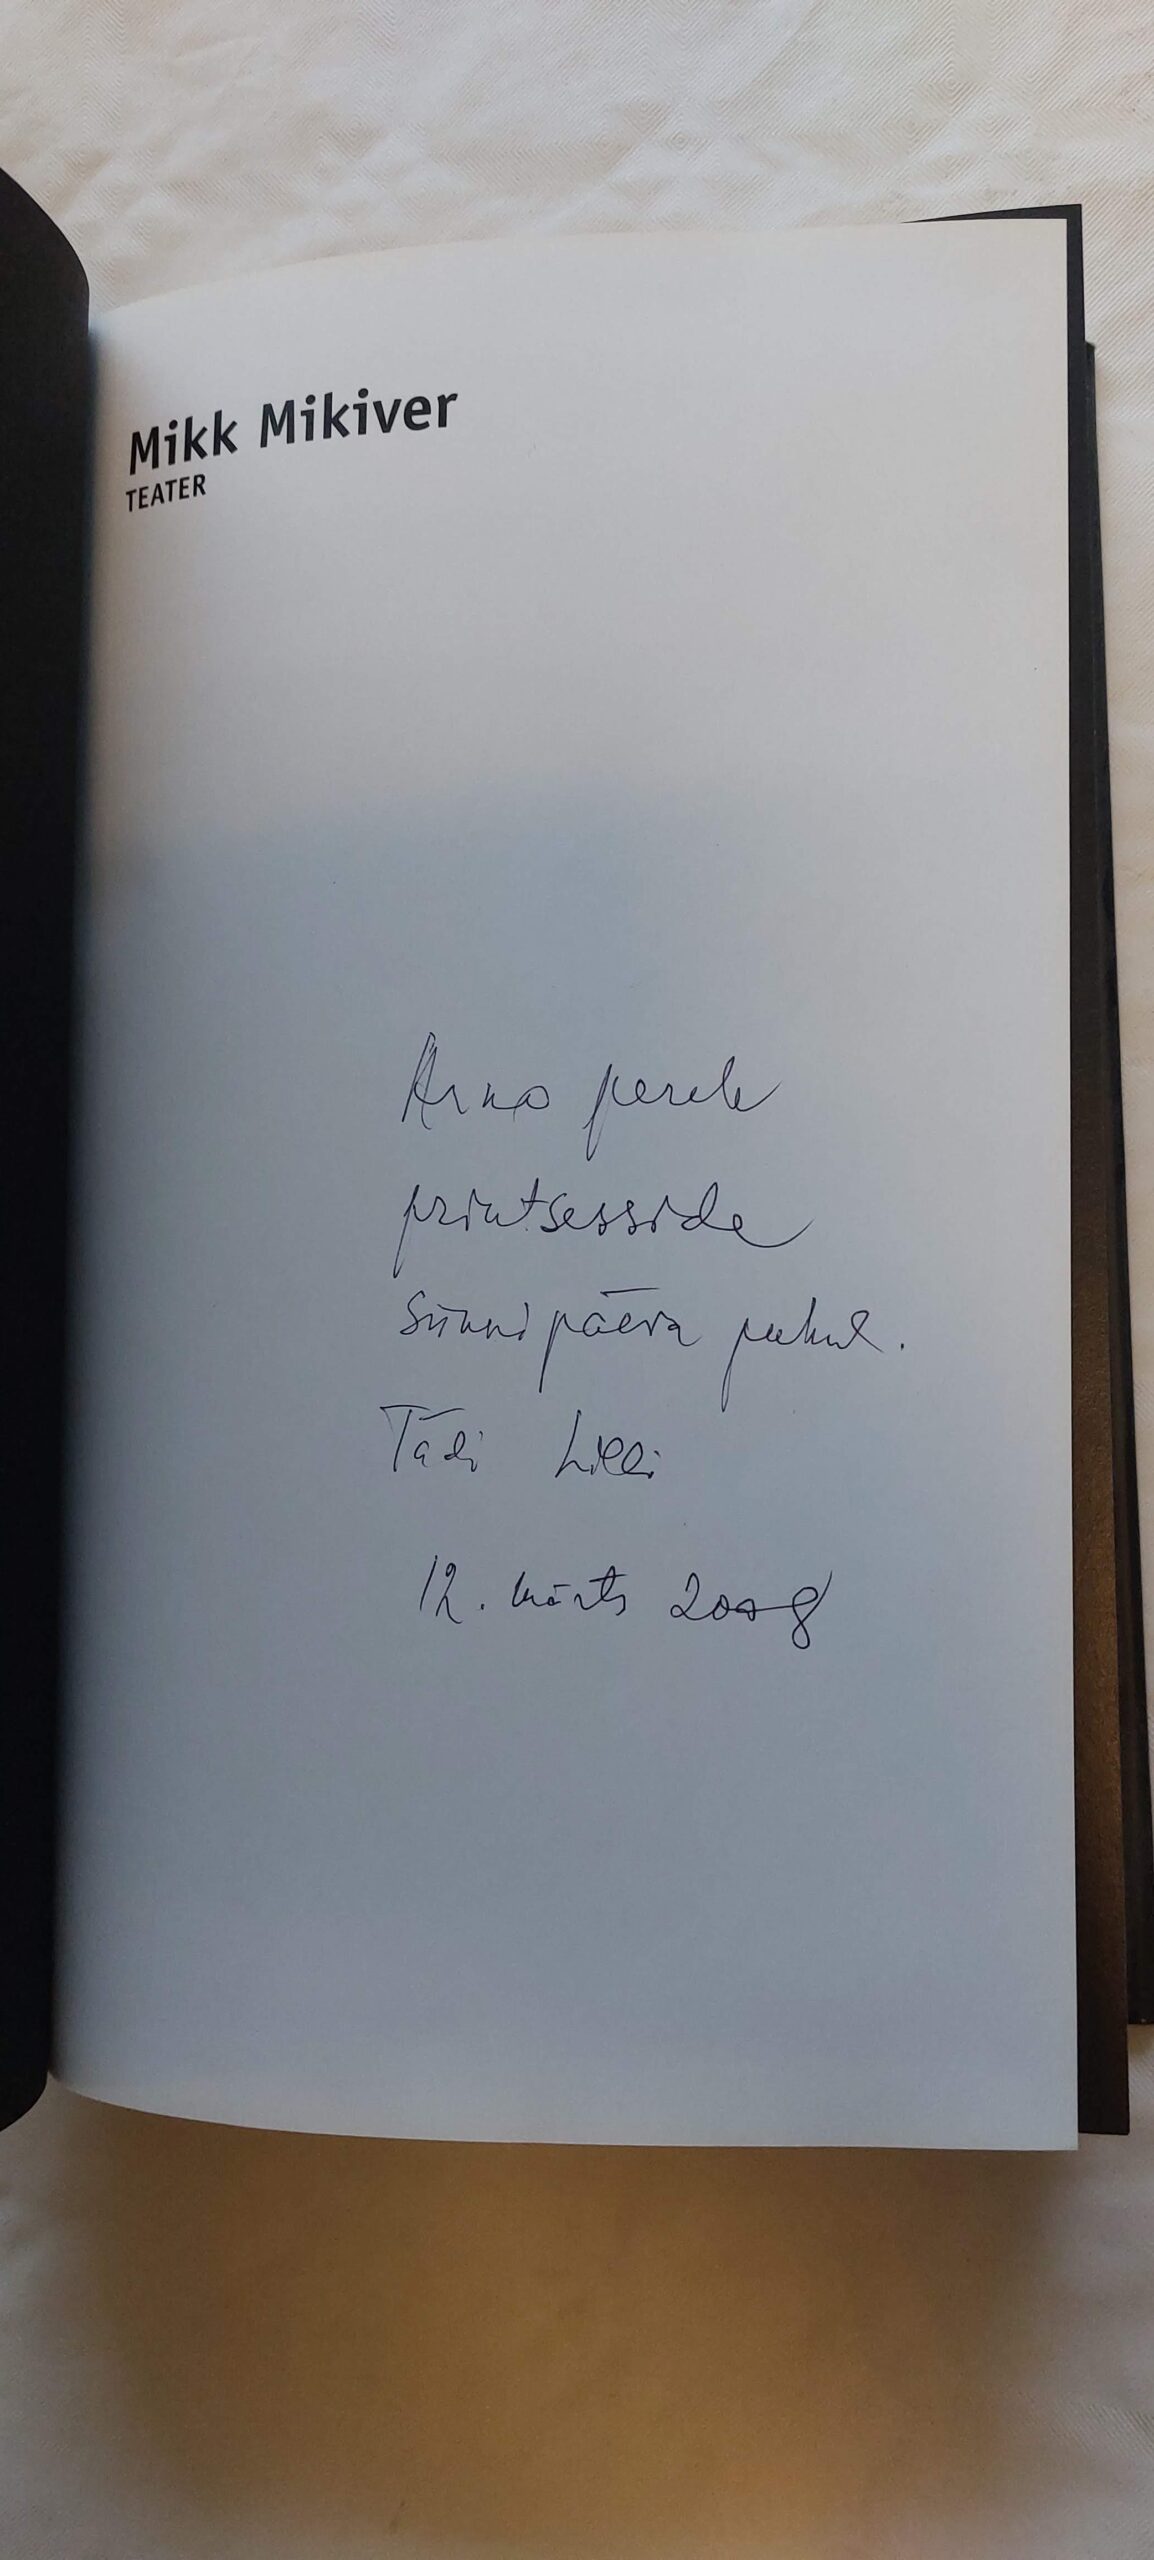 Mikk Mikiver
TEATER
Arno perele
printsesside
sünnipäeva puhul.
Tädi Lilli
12. märts 2008